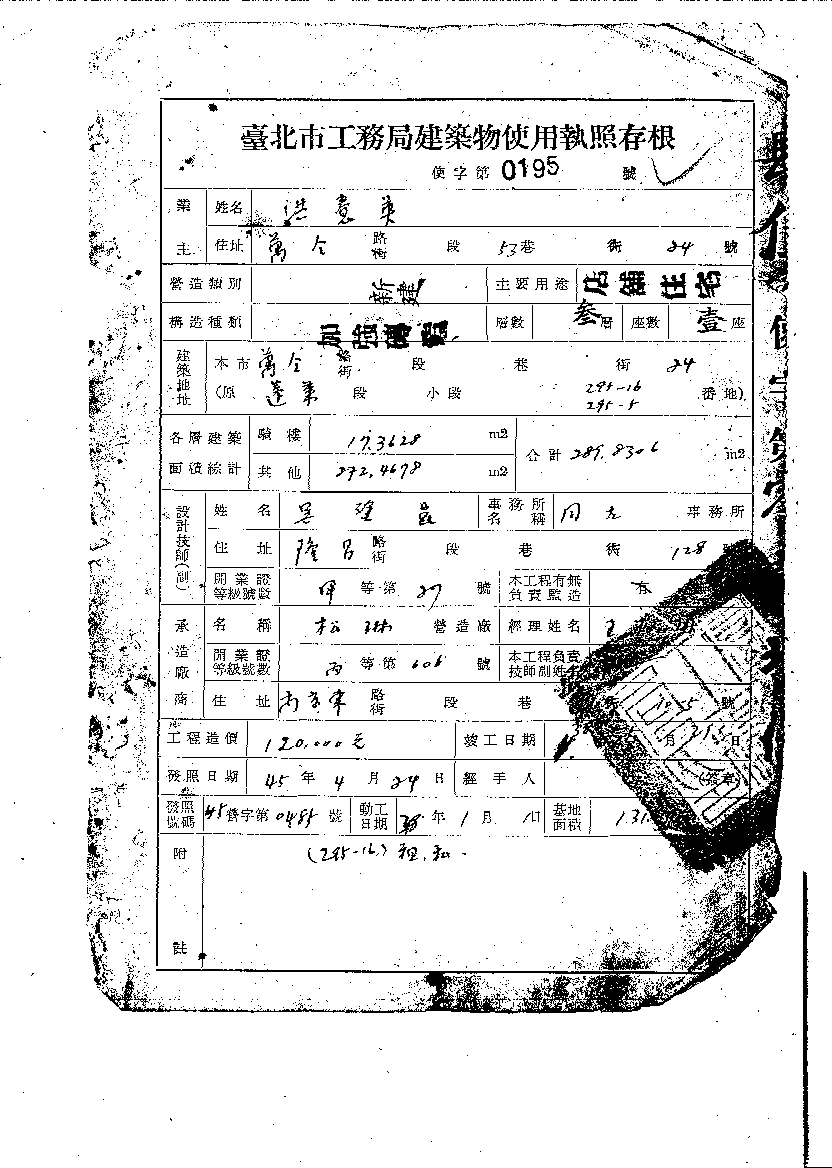 臺北市工務局建築物使用執照存根
使字第 0195 號
業主 姓名 洪意英
住址 萬全 路街 段 53巷 街 24 號
營造類別 新建 主要用途 店舖住宅
構造種類 加強磚造 層數 叁層 座數 壹座
建築地址 本市 萬全 路街 段 巷 街 24
(原 蓬萊 段 小段 295-16 295-5 番地)
各層建築面積綜計 騎樓 17.3628 m2 合計 289.8306 m2
其他 272.4678 m2
設計技師(副) 姓名 事務所名稱 事務所
住址 隆昌 路街 段 巷 街 128
開業證等級號數 甲 等第 27 號 本工程有無負責監造 有
承造廠商 名稱 松 營造廠 經理姓名 王
開業證等級號數 丙 等第 606 號 本工程負責技師副姓名
住址 南京東 路街 段 巷 號
工程造價 120,000元 竣工日期 月 日
發照日期 45年4月24日 經手人
發照號碼 45營字第0485號 動工日期 年1月1日 基地面積 131
附註 (295-16)